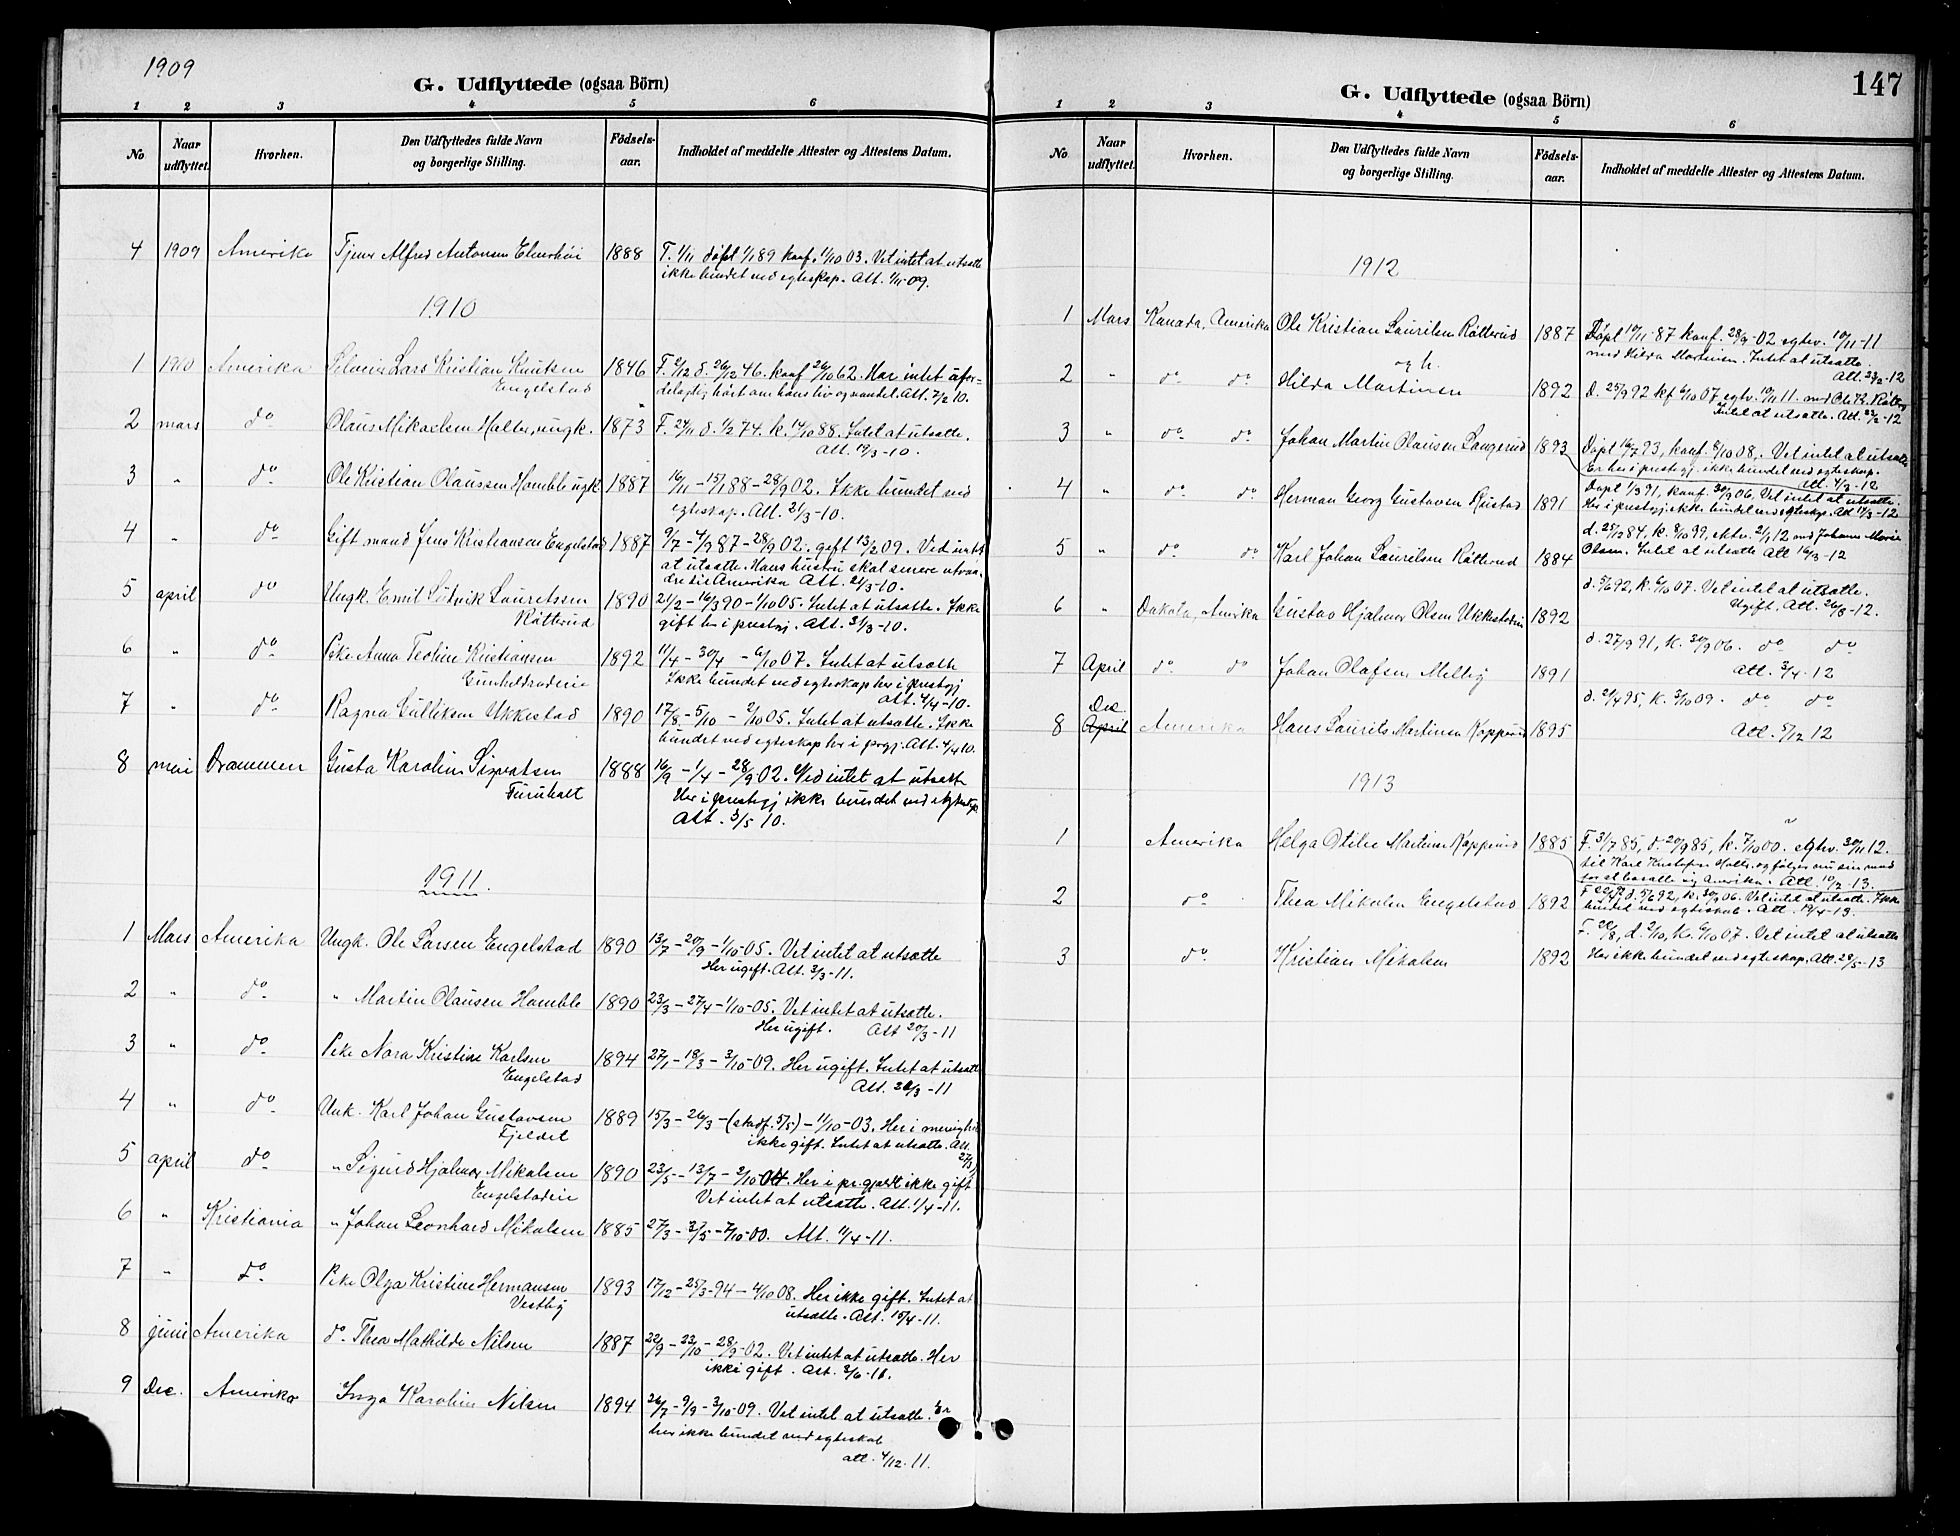 1909
G. Udflyttede (ogsaa Börn)
1 2 3 4 5 6
No
Naar udflyttet.
Hvorhen.
Den Udflyttedes fulde Navn og borgerlige Stilling.
Födsels-aar.
Indholdet af meddelte Attester og Attestens Datum.
4 1909 Amerika Tjener Alfred Antonsen 1888 F. 1/11 døpt 1/1 89 konf. 1/10 03. Vet intet at utsætte
ikke bundet ved egteskap. Att. 1/11-09.
1910
1 1910 Amerika Lars Kristian Knutsen 1846 F. 2/12 d. 26/12 46. konf 26/10 62. Har intet ufor-
Engelstad delagtig hørt om hans liv og vandel. Att. 7/2 10.
2 mars do Olaus Mikaelsen Holter, ungk. 1873 F. 27/11 d. 1/2 74. k. 14/10 88. Intet at utsætte.
Att. 19/3-10.
3 " do Ole Kristian Olaussen Homble ugk 1887 16/11 - 15/1 88 - 28/9 02. Ikke bundet ved
egteskap. Att. 21/3-10.
4 " do Gift mand Jens Kristiansen Engelstad 1887 9/7 - 4/9 87 - 28/9 02. gift 13/2 09. Ved intet
at utsætte. Hans hustru skal senere utvan-
dre til Amerika Att. 21/3-10.
5 april do Ungk. Emil Ludvik Lauretssen 1890 21/2 - 16/3 90 - 1/10 05. Intet at utsætte. Ikke
Røtterud gift her i prestgj. Att. 31/3-10.
6 " do Pike Anna Teoline Kristiansen 1892 11/4 - 30/4 - 6/10 07. Intet at utsætte
Gunhildrudeie Ikke bundet ved egteskap her i prestgj
Att. 4/4-10.
7 " do Ragna Gulliksen Ukkestad 1890 17/8 - 5/10 - 2/10 05. Intet at utsætte. Ikke
bundet ved egteskap her i prgj. Att. 4/4 10.
8 mai Drammen Gusta Karoline Sigvatsen 1888 16/9 - 1/4 - 28/9 02. Ved intet at utsætte
Furuholt Her i prestegj ikke bundet ved egteskap
Att. 3/5 10.
1911.
1 Mars Amerika Ungk. Ole Larsen Engelstad 1890 13/7 - 20/9 - 1/10-05. Vet intet at utsætte
Her ugift. Att. 3/3-11.
2 " do " Martin Olausen Homble 1890 23/3 - 27/4 - 1/10-05. Vet intet at utsætte.
Her ugift. Att 20/3-11
3 " do Pike Nora Kristine Karlsen 1894 27/1 - 18/3 - 3/10-09. Her ugift. Intet at utsætte
Engelstad Att. 20/3-11
4 " do Unk. Karl Johan Gustavsen 1889 15/3 - 26/3 - (stadf. 5/5) - 1/10-03. Her i menighet
Fjeldet ikke gift. Intet at utsætte. Att. 27/3
5 april do " Sigurd Hjalmar Mikalsen 1890 23/5 - 13/7 - 2/10-04. Her i pr. gjeld ikke gift
Engelstadeie Vet intet at utsætte. Att. 1/4-11.
6 " Kristiania " Johan Leonhard Mikalsen 1885 27/3 - 3/5 - 7/10-00. Att. 11/4-11.
7 " do Pike Olga Kristine Hermansen 1893 17/12 - 25/3-94 - 4/10 08. Her ikke gift. Intet at
Vestby utsætte. Att. 15/4-11.
8 juni Amerika do Thea Mathilde Nilsen 1887 22/9 - 23/10 - 28/9-02. Vet intet at utsætte. Her
ikke gift. Att. 2/6-11.
9 Dec. Amerika Inga Karoline Nilsen 1894 26/7 - 9/9 - 3/10-09. Vet intet at utsætte. Er
her ikke bundet ved egteskab
att. 4/12-11.
147
G. Udflyttede (ogsaa Börn)
1 2 3 4 5 6
No
Naar udflyttet.
Hvorhen.
Den Udflyttedes fulde Navn og borgerlige Stilling.
Födsels-aar.
Indholdet af meddelte Attester og Attestens Datum.
1912
1 Mars Kanada, Amerika Ole Kristian Lauritsen Røtterud 1887 Døpt 10/11-87 konf. 28/9-02 egtev. 10/11-11
og h. med Hilda Martinsen. Intet at utsætte.
Att. 23/2-12
2 " do do Hilda Martinsen 1892 d. 25/9 92 kf 6/10 07 egtv. 10/11 11. med Ole K. Røtterud
Intet at utsætte. Att. 23/2-12
3 " do do Johan Martin Olausen Langerud 1893 Døpt 16/7 93, konf. 8/10 08. Vet intet at utsætte
Er her i prestegj. ikke bundet ved egteskap.
Att. 4/3-12
4 " do do Herman Georg Gustavsen Rustad 1891 Døpt 1/3 91, konf. 30/9 06. Vet intet at utsætte.
Her i prestegj. ikke bundet ved egteskap. Att 11/3-12
5 " do do Karl Johan Lauritsen Røtterud 1884 d. 25/12 84, k. 8/10 99, ektev. 21/1 12 med Johanne Marie
Olsen. Intet at utsætte Att 16/3-12
6 " Dakota, Amrika Gustav Hjalmar Olsen Ukkestadeie 1892 d. 5/6 92, k. 6/10 07. Vet intet at utsætte.
Ugift. Att. 26/3-12.
7 April do do Johan Olafsen Melby 1891 d. 27/9 91, k. 30/9 06. do do
Att. 3/4-12
Dec.
8 April Amerika Hans Laurits Martinsen Kopperud 1895 d. 21/4 95, k. 3/10 09. do do
Att. 5/12 12
1913
1 Amerika Helga Otilie Martinsen Kopperud 1885 F. 31/7 85, d. 20/9 85, k. 7/10 00. egtev. 30/11 12.
til Karl Gustafsen Holter, og følger nu sin mand
for at bosætte sig Amerika. Att. 10/2-13.
2 do Thea Mikalsen Engelstad 1892 d. 5/6 92, k. 30/9 06. Vet intet at utsætte. Ikke
bundet ved egteskab. Att. 19/4-13.
3 do Kristian Mikalsen 1892 F. 22/8, d. 2/10, k. 6/10 07. Vet intet at utsætte
Her ikke bundet ved egteskap. Att. 29/5-13